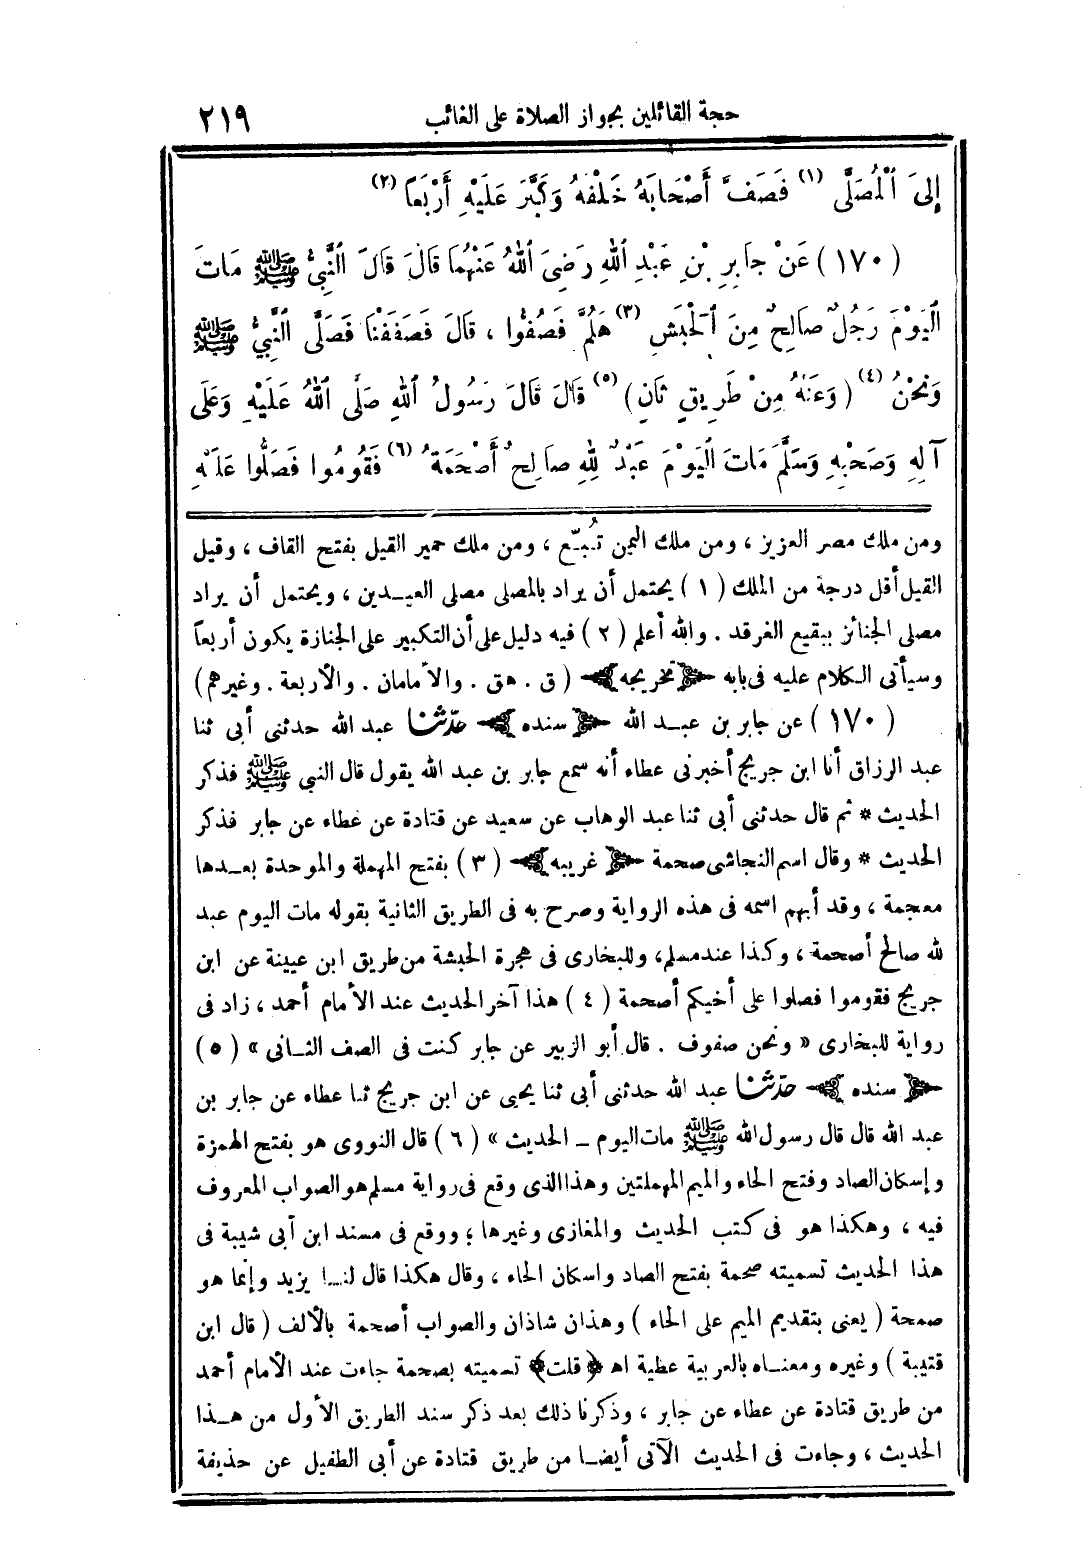 حجة القائلين بجواز الصلاة على الغائب ٢١٩
إِلَى ٱلْمُصَلَّى (١) فَصَفَّ أَصْحَابَهُ خَلْفَهُ وَكَبَّرَ عَلَيْهِ أَرْبَعًا (٢)
(١٧٠) عَنْ جَابِرِ بْنِ عَبْدِ ٱللهِ رَضِيَ ٱللهُ عَنْهُمَا قَالَ قَالَ ٱلنَّبِيُّ ﷺ مَاتَ
ٱلْيَوْمَ رَجُلٌ صَالِحٌ مِنَ ٱلْحَبَشِ (٣) هَلُمَّ فَصُفُّوا ، قَالَ فَصَفَفْنَا فَصَلَّى ٱلنَّبِيُّ ﷺ
وَنَحْنُ (٤) (وَعَنْهُ مِنْ طَرِيقٍ ثَانٍ) (٥) قَالَ قَالَ رَسُولُ ٱللهِ صَلَّى ٱللهُ عَلَيْهِ وَعَلَى
آلِهِ وَصَحْبِهِ وَسَلَّمَ مَاتَ ٱلْيَوْمَ عَبْدٌ لِلهِ صَالِحٌ أَصْحَمَةُ (٦) فَقُومُوا فَصَلُّوا عَلَيْهِ
ومن ملك مصر العزيز ، ومن ملك اليمن تُبـَّع ، ومن ملك حمير القيل بفتح القاف ، وقيل
القيل أقل درجة من الملك (١) يحتمل أن يراد بالمصلى مصلى العيـدين ، ويحتمل أن يراد
مصلى الجنائز ببقيع الغرقد . والله أعلم (٢) فيه دليل على أن التكبير على الجنازة يكون أربعاً
وسيأتى الكلام عليه فى بابه ﴿تخريجه﴾ (ق . هق . والأمامان . والأربعة . وغيرهم)
(١٧٠) عن جابر بن عبـد الله ﴿سنده﴾ حدّثنا عبد الله حدثنى أبى ثنا
عبد الرزاق أنا ابن جريج أخبرنى عطاء أنه سمع جابر بن عبد الله يقول قال النبى ﷺ فذكر
الحديث * ثم قال حدثنى أبى ثنا عبد الوهاب عن سعيد عن قتادة عن عطاء عن جابر فذكر
الحديث * وقال اسم النجاشى صحمة ﴿غريبه﴾ (٣) بفتح المهملة والموحدة بعـدها
معجمة ، وقد أبهم اسمه فى هذه الرواية وصرح به فى الطريق الثانية بقوله مات اليوم عبد
لله صالح أصحمة ، وكذا عند مسلم ، وللبخارى فى هجرة الحبشة من طريق ابن عيينة عن ابن
جريج فقوموا فصلوا على أخيكم أصحمة (٤) هذا آخر الحديث عند الأمام أحمد ، زاد فى
رواية للبخارى « ونحن صفوف . قال أبو الزبير عن جابر كنت فى الصف الثـانى » (٥)
﴿سنده﴾ حدّثنا عبد الله حدثنى أبى ثنا يحيى عن ابن جريج ثنا عطاء عن جابر بن
عبد الله قال قال رسول الله ﷺ مات اليوم ــ الحديث » (٦) قال النووى هو بفتح الهمزة
وإسكان الصاد وفتح الحاء والميم المهملتين وهذا الذى وقع فى رواية مسلم هو الصواب المعروف
فيه ، وهكذا هو فى كتب الحديث والمغازى وغيرها ؛ ووقع فى مسند ابن أبى شيبة فى
هذا الحديث تسميته صحمة بفتح الصاد واسكان الحاء ، وقال هكذا قال لنـا يزيد وإنما هو
صمحة (يعنى بتقديم الميم على الحاء) وهذان شاذان والصواب أصحمة بالألف (قال ابن
قتيبة) وغيره ومعنـاه بالعربية عطية اهـ ﴿قلت﴾ تسميته بصحمة جاءت عند الأمام أحمد
من طريق قتادة عن عطاء عن جابر ، وذكرنا ذلك بعد ذكر سند الطريق الأول من هـذا
الحديث ، وجاءت فى الحديث الآتى أيضـا من طريق قتادة عن أبى الطفيل عن حذيفة